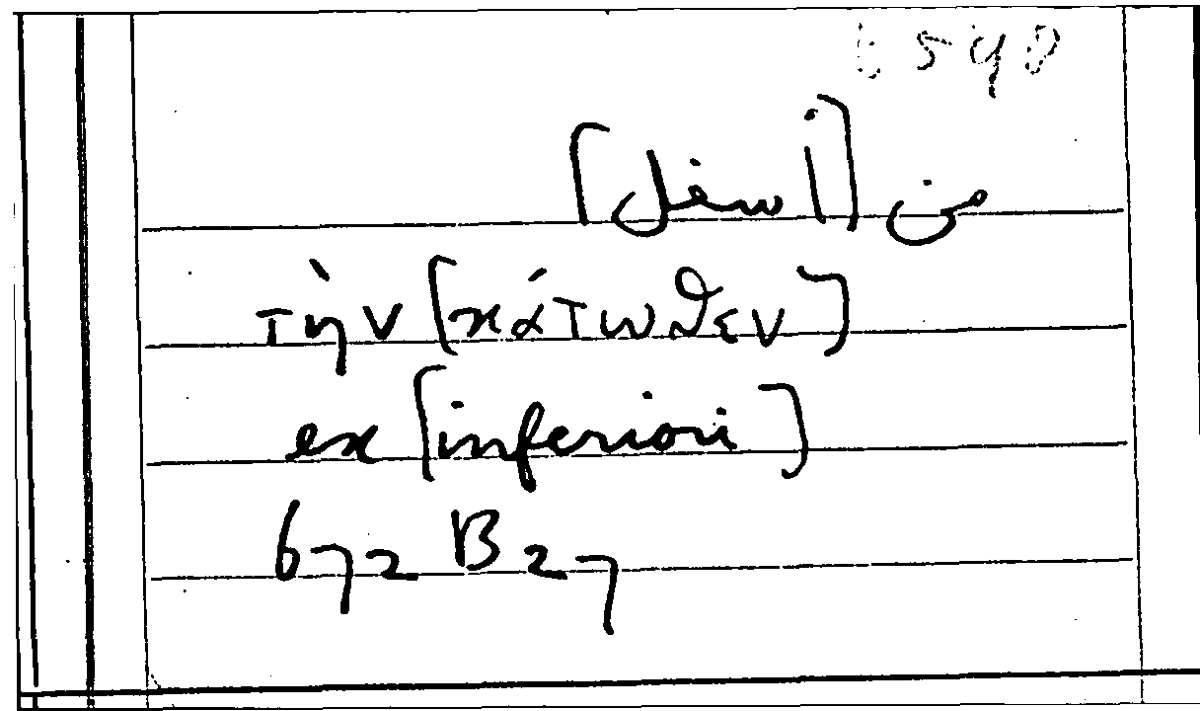 من [أسفل]
τὴν [κάτωθεν]
ex [inferiori]
672 B 27